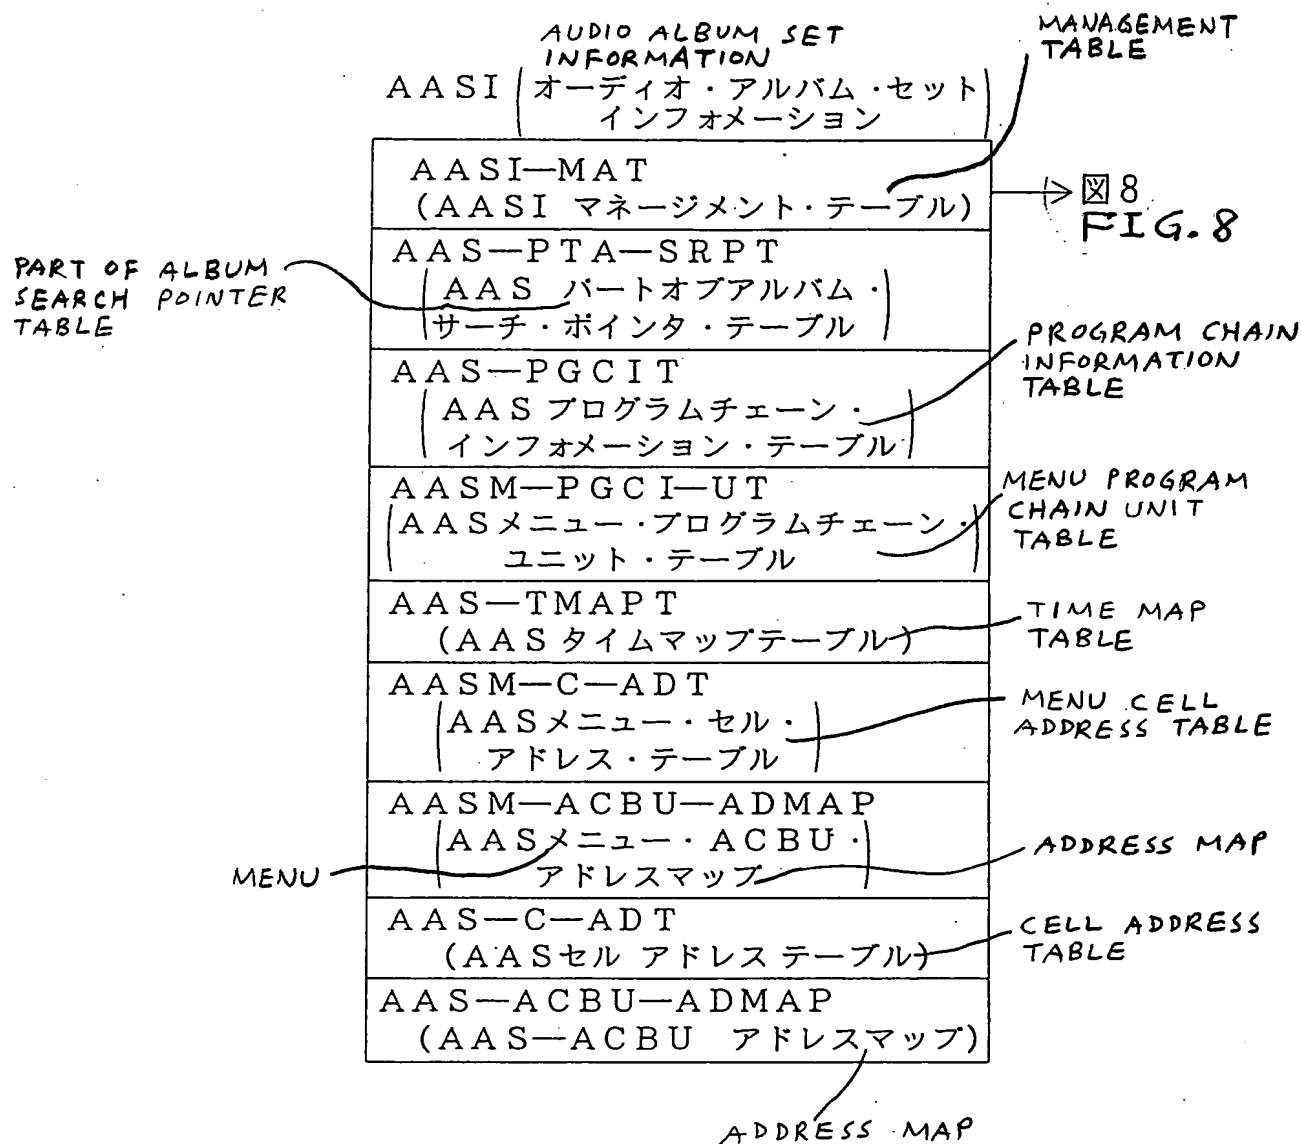 AUDIO ALBUM SET
INFORMATION
MANAGEMENT
TABLE
AASI (オーディオ・アルバム・セット
インフォメーション)
AASI—MAT
(AASI マネージメント・テーブル)
図8
FIG. 8
AAS—PTA—SRPT
(AAS パートオブアルバム・
サーチ・ポインタ・テーブル)
PART OF ALBUM
SEARCH POINTER
TABLE
AAS—PGCIT
(AAS プログラムチェーン・
インフォメーション・テーブル)
PROGRAM CHAIN
INFORMATION
TABLE
AASM—PGCI—UT
(AASメニュー・プログラムチェーン・
ユニット・テーブル)
MENU PROGRAM
CHAIN UNIT
TABLE
AAS—TMAPT
(AAS タイムマップテーブル)
TIME MAP
TABLE
AASM—C—ADT
(AASメニュー・セル・
アドレス・テーブル)
MENU CELL
ADDRESS TABLE
AASM—ACBU—ADMAP
(AASメニュー・ACBU・
アドレスマップ)
MENU
ADDRESS MAP
AAS—C—ADT
(AASセル アドレス テーブル)
CELL ADDRESS
TABLE
AAS—ACBU—ADMAP
(AAS—ACBU アドレスマップ)
ADDRESS MAP